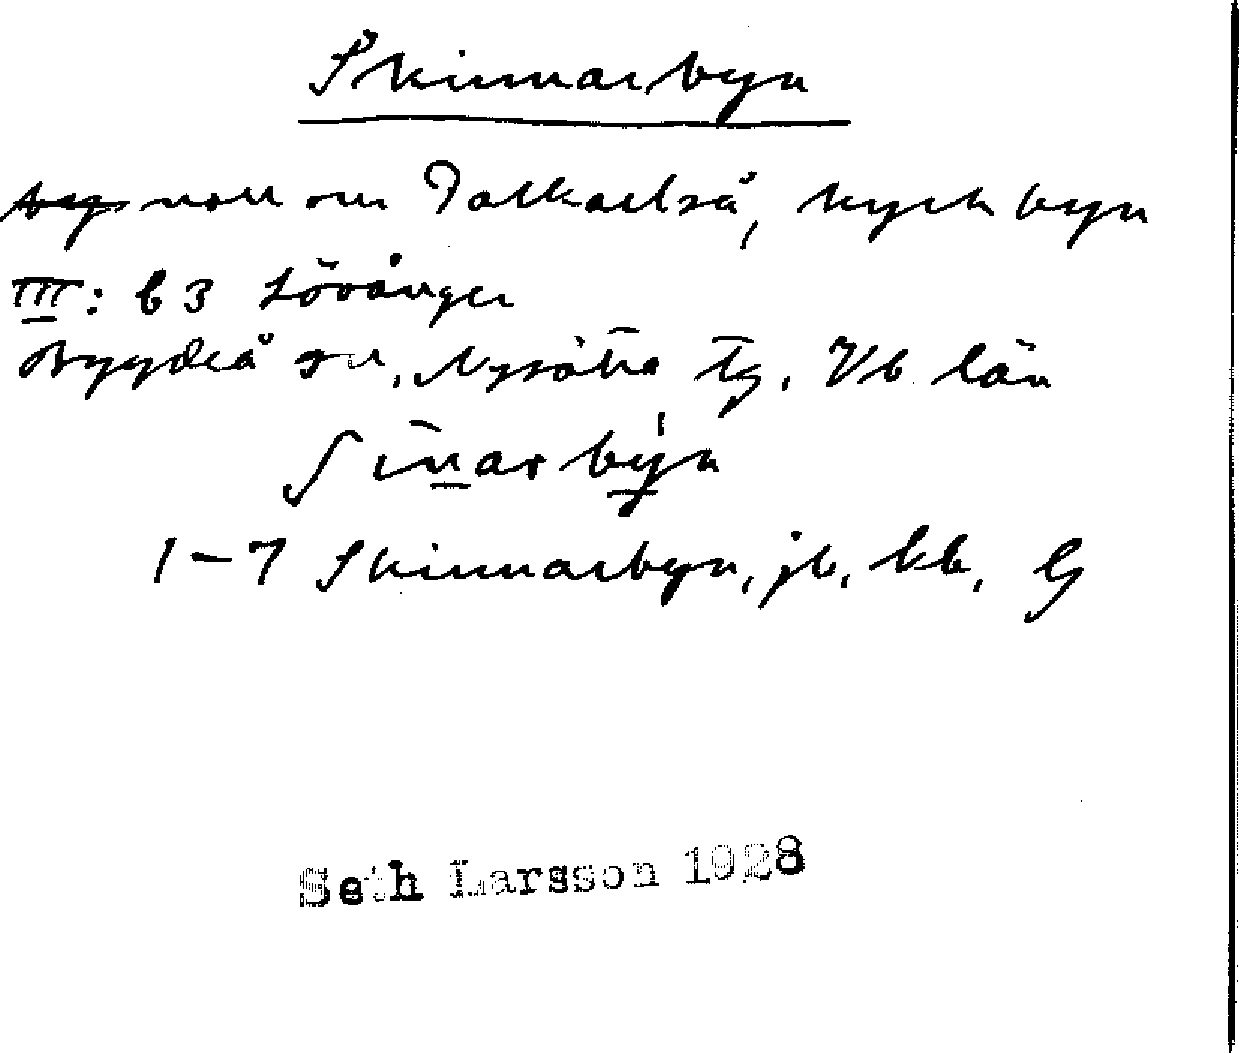 Skinnarbyn
norr om Talkarlså, kyrkbyn
III: b 3 Lövånger
Bygdeå sn, Nysätra tg, Vb län
ʃīnar býn
1-7 Skinnarbyn, jb, kb, G
Seth Larsson 1928